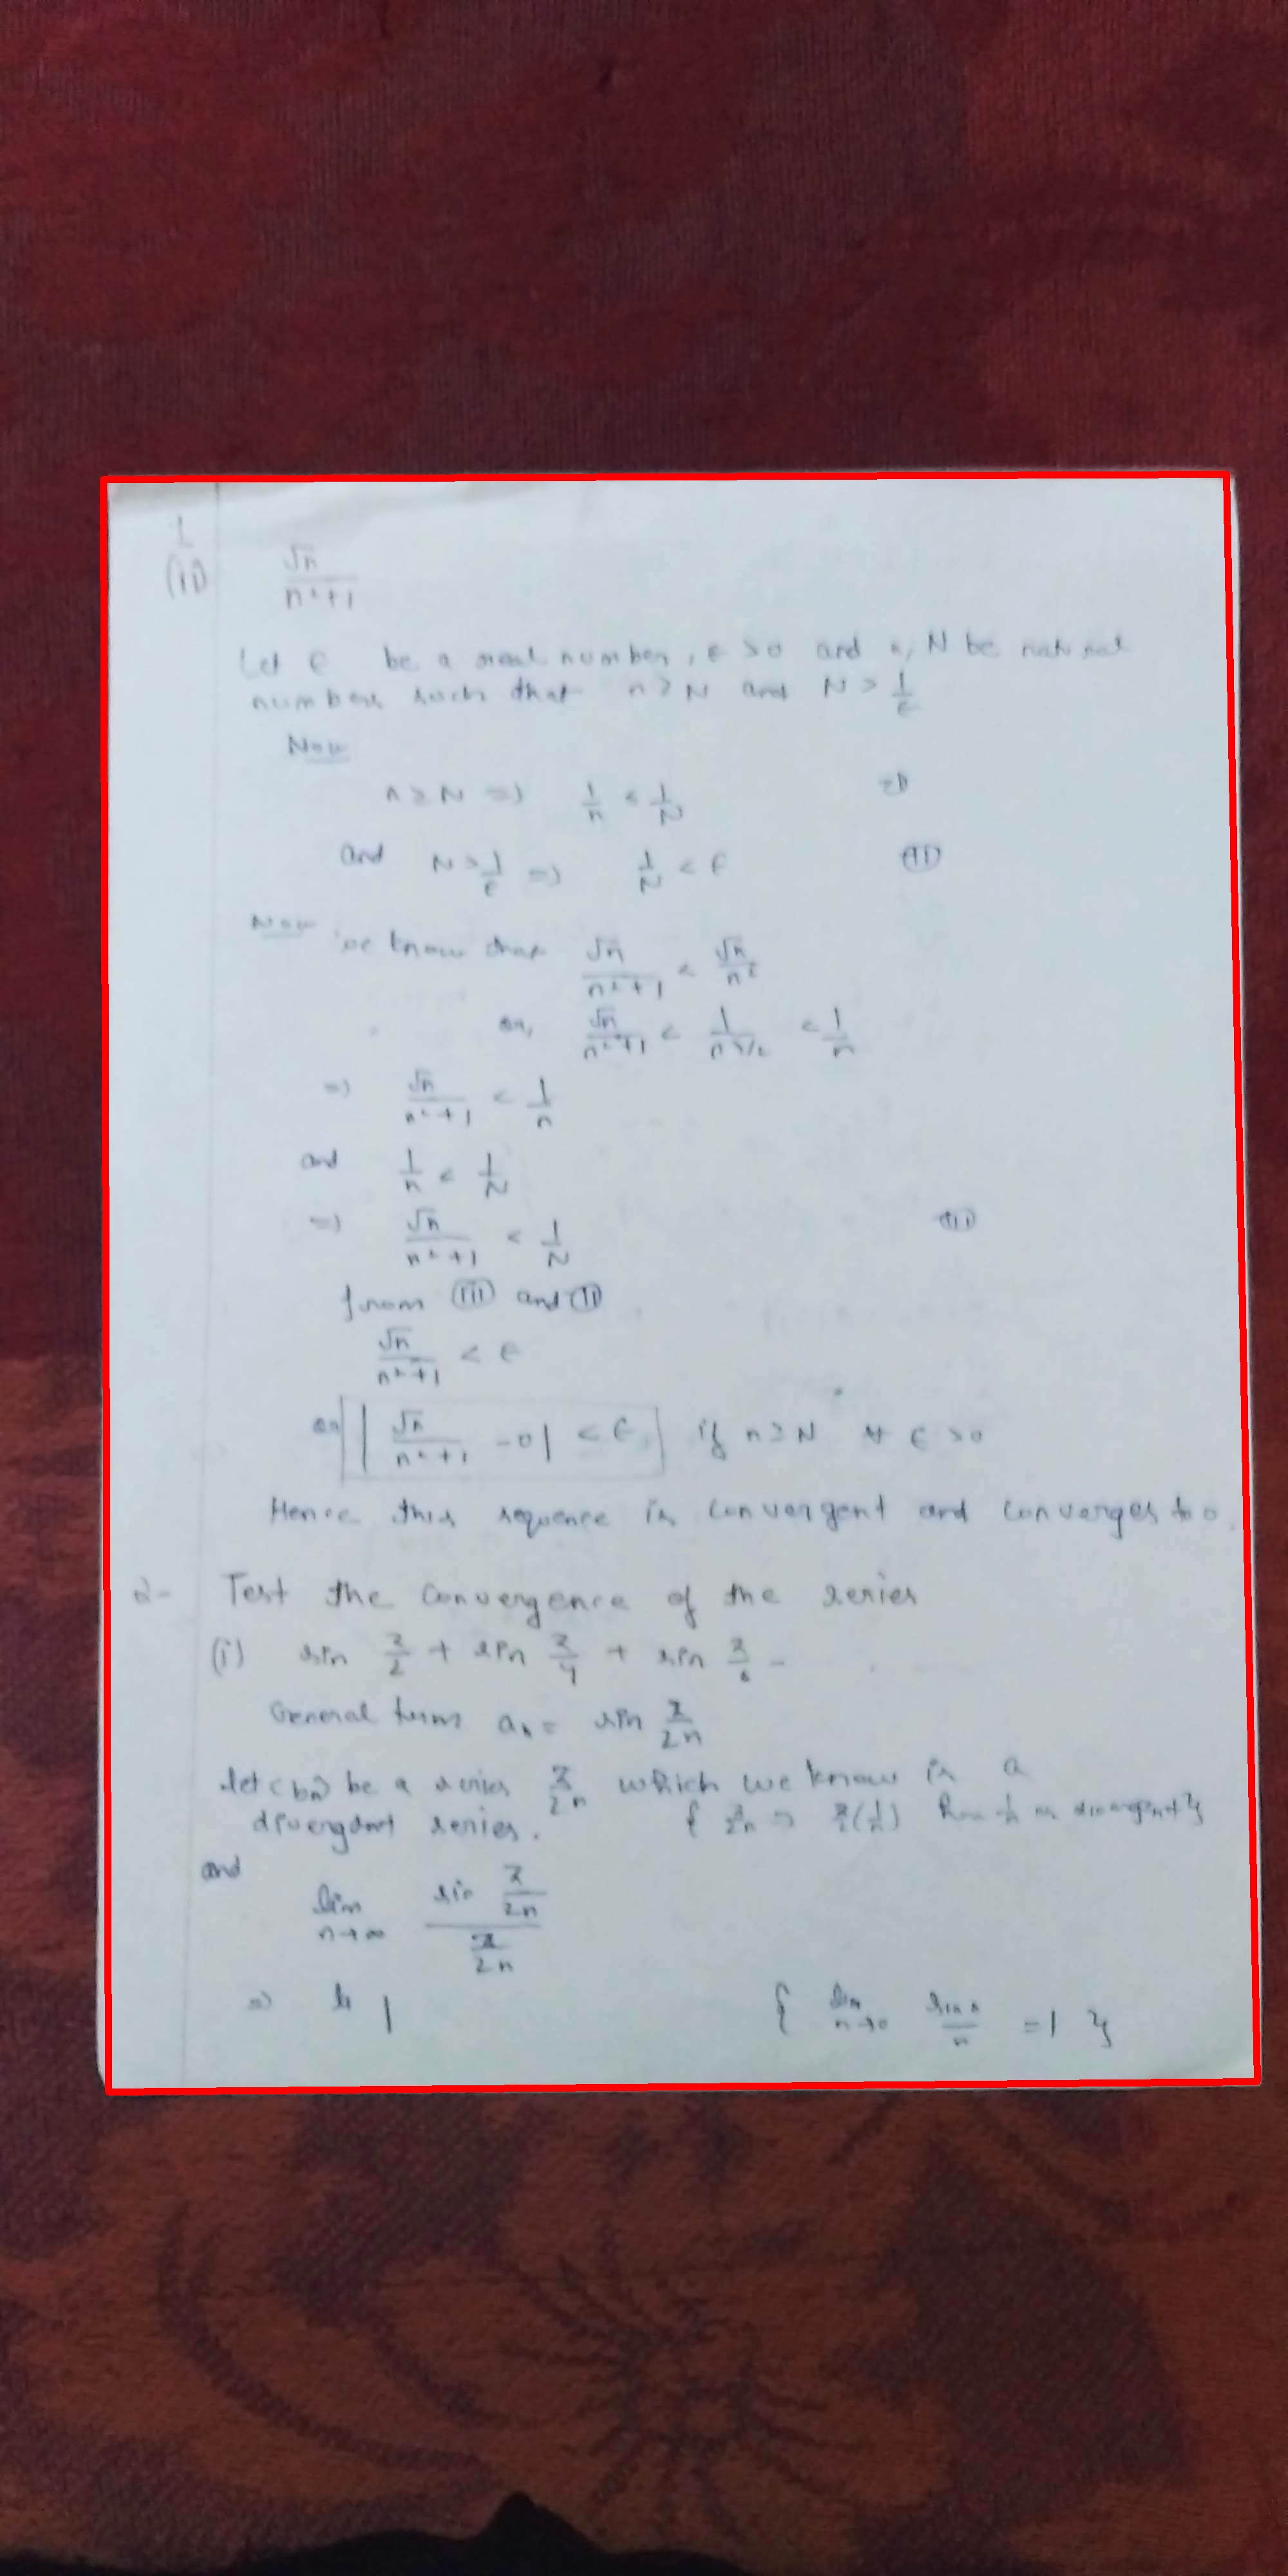 1
(ii) √n / (n²+1)
Let ϵ be a real number, ϵ > 0 and n, N be natural
numbers such that n ≥ N and N > 1/ϵ
Now
n ≥ N => 1/n < 1/N
and N > 1/ϵ => 1/N < ϵ (II)
Now we know that √n / (n²+1) < √n / n²
or, √n / (n²+1) < 1 / n^(3/2) < 1/n
=> √n / (n²+1) < 1/n
and 1/n < 1/N
=> √n / (n²+1) < 1/N (III)
from (III) and (II)
√n / (n²+1) < ϵ
or | √n / (n²+1) - 0 | < ϵ, if n ≥ N ∀ ϵ > 0
Hence this sequence is convergent and converges to 0.
2- Test the convergence of the series
(i) sin 3/2 + sin 3/4 + sin 3/6 -
General term aₙ = sin 3/2n
let <bₙ> be a series 3/2n which we know is a
divergant series. { 3/2n => 3/2 (1/n) 1/n is divergent }
and
lim n→∞ (sin 3/2n) / (3/2n)
=> 1 { lim n→0 sin n / n = 1 }